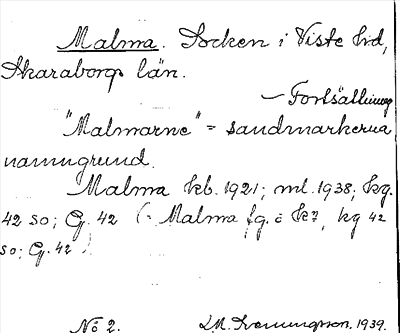 Malma. Socken i Viste hd,
Skaraborgs län.
— Fortsättning
"Malmarne" = sandmarkerna
namngrund.
Malma kb. 1921; ml. 1938; kg.
42 so; G. 42 (: Malma fg. o k?, kg 42
so; G. 42)
No 2. 1939.